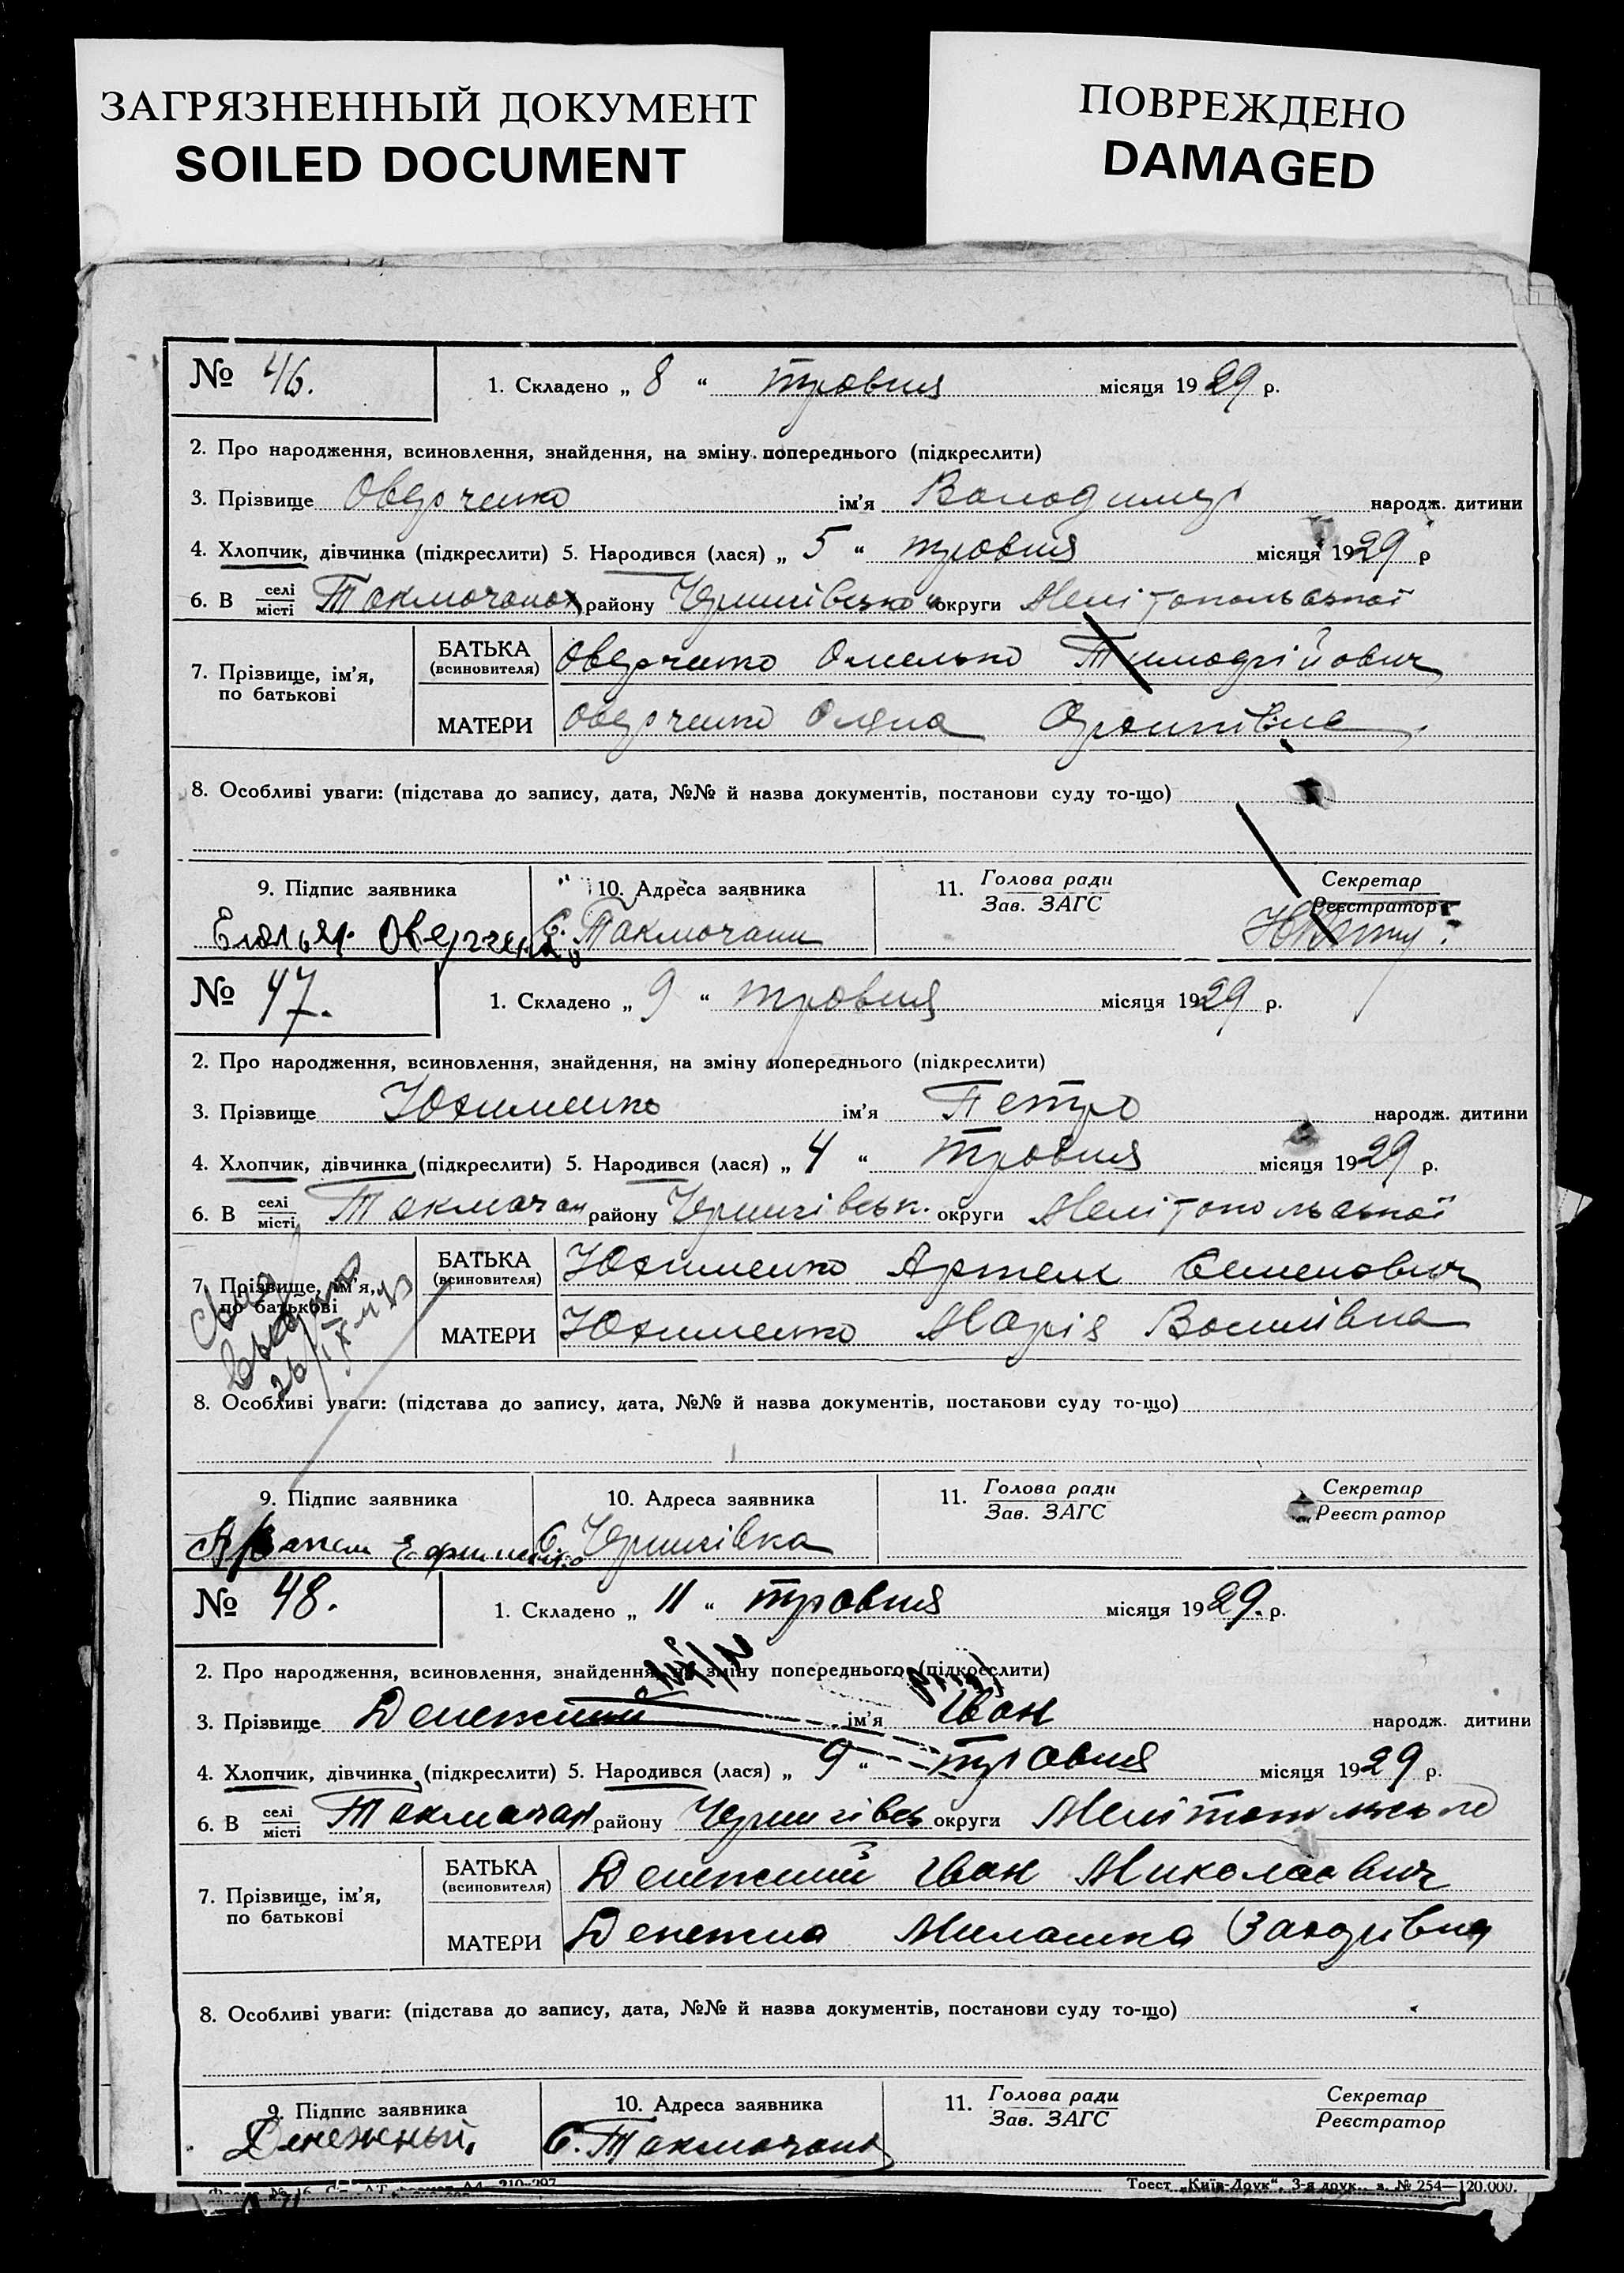 ЗАГРЯЗНЕННЫЙ ДОКУМЕНТ
SOILED DOCUMENT
ПОВРЕЖДЕНО
DAMAGED
№ 46. 1. Складено „ 8 “ травня місяця 1929 р.
2. Про народження, всиновлення, знайдення, на зміну попереднього (підкреслити)
3. Прізвище Оверченко ім’я Володимер народж. дитини
4. Хлопчик, дівчинка (підкреслити) 5. Народився (лася) „ 5 “ травня місяця 1929 р
6. В селі місті Токмочанах району Чернигівської округи Мелітопольської
7. Прізвище, ім’я, по батькові
БАТЬКА (всиновителя) Оверченко Омелько
МАТЕРИ Оверченко Олена
8. Особливі уваги: (підстава до запису, дата, №№ й назва документів, постанови суду то-що)
9. Підпис заявника 10. Адреса заявника 11. Голова ради Зав. ЗАГС Секретар Реєстратор
С. Такмочани
№ 47. 1. Складено „ 9 “ травня місяця 1929 р.
2. Про народження, всиновлення, знайдення, на зміну попереднього (підкреслити)
3. Прізвище Юхименко ім’я Петро народж. дитини
4. Хлопчик, дівчинка (підкреслити) 5. Народився (лася) „ 4 “ травня місяця 1929 р.
6. В селі місті Токмачан району Чернигівськ. округи Мелітопольської
7. Прізвище, ім’я, по батькові
БАТЬКА (всиновителя) Юхименко Артем Семенович
МАТЕРИ Юхименко Марія Василівна
8. Особливі уваги: (підстава до запису, дата, №№ й назва документів, постанови суду то-що)
9. Підпис заявника 10. Адреса заявника 11. Голова ради Зав. ЗАГС Секретар Реєстратор
Ефименко С. Чернигівка
№ 48. 1. Складено „ 11 “ травня місяця 1929. р.
2. Про народження, всиновлення, знайдення, на зміну попереднього (підкреслити)
3. Прізвище Денежний ім’я Іван народж. дитини
4. Хлопчик, дівчинка (підкреслити) 5. Народився (лася) „ 9 “ травня місяця 1929 р.
6. В селі місті Токмачан району Чернигівськ округи
7. Прізвище, ім’я, по батькові
БАТЬКА (всиновителя) Денежний Іван Миколаєвич
МАТЕРИ Денежна Милашка
8. Особливі уваги: (підстава до запису, дата, №№ й назва документів, постанови суду то-що)
9. Підпис заявника 10. Адреса заявника 11. Голова ради Зав. ЗАГС Секретар Реєстратор
Денежный С. Такмочани
Тоест „Київ-Друк“, 3-я друк., з. № 254—120.000.